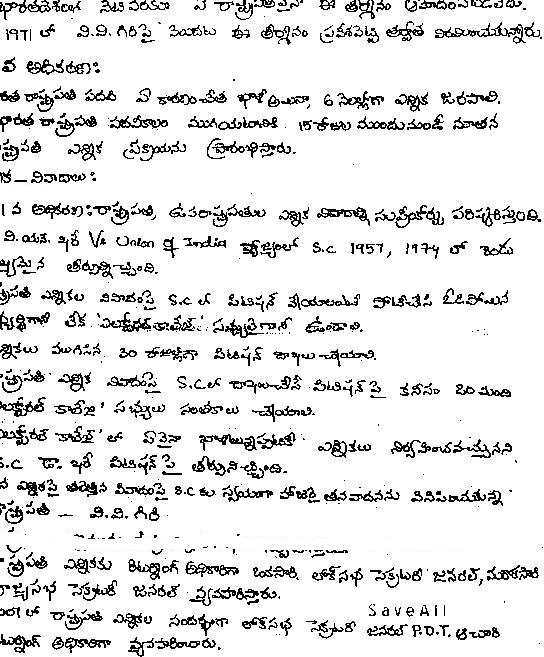 భారతదేశంలో ఇప్పటివరకూ ఏ రాష్ట్రపతిపైనా ఈ తీర్మానం ఆమోదించబడలేదు.
1971 లో వి.వి. గిరిపై మొదట ఈ తీర్మానం ప్రవేశపెట్టి తర్వాత విరమించుకున్నారు.
వ అధికరణ:
రత రాష్ట్రపతి పదవి ఏ కారణంచేత ఖాళీ అయినా, 6 నెలల్లోగా ఎన్నిక జరపాలి.
భారత రాష్ట్రపతి పదవీకాలం ముగియటానికి 15 రోజుల ముందునుండే నూతన
ష్ట్రపతి ఎన్నిక ప్రక్రియను ప్రారంభిస్తారు.
క – వివాదాలు:
1 వ అధికరణ: రాష్ట్రపతి, ఉపరాష్ట్రపతుల ఎన్నిక వివాదాన్ని సుప్రీంకోర్టు పరిష్కరిస్తుంది.
వి. యన్. ఖరే Vs Union of India వ్యాజ్యంలో S.C 1957, 1974 లో రెండు
ఖ్యమైన తీర్పునిచ్చింది.
ష్ట్రపతి ఎన్నికల వివాదంపై S.C లో పిటిషన్ వేయాలంటే పోటీచేసి ఓడిపోయిన
భ్యర్థిగానీ లేక 'ఎలక్టోరల్ కాలేజ్' సభ్యుడైగానీ ఉండాలి.
న్నికలు ముగిసిన 30 రోజుల్లోగా పిటిషన్ దాఖలు చేయాలి.
ష్ట్రపతి ఎన్నిక వివాదంపై S.C లో దాఖలుచేసే పిటిషన్ పై కనీసం 20 మంది
లక్టోరల్ కాలేజీ' సభ్యులు సంతకాలు చేయాలి.
ఎలక్టోరల్ కాలేజ్' లో ఏవైనా ఖాళీలున్నప్పటికీ ఎన్నికలు నిర్వహించవచ్చునని
S.C డా. ఖరే పిటిషన్ పై తీర్పునిచ్చింది.
న ఎన్నికపై తలెత్తిన వివాదంపై S.C కు స్వయంగా హాజరై తనవాదనను వినిపించుకున్న
రాష్ట్రపతి – వి.వి. గిరి
రాష్ట్రపతి ఎన్నికకు రిటర్నింగ్ అధికారిగా ఒకసారి లోక్ సభ సెక్రటరీ జనరల్, మరొకసారి
రాజ్యసభ సెక్రటరీ జనరల్ వ్యవహరిస్తారు.
SaveAll
లో రాష్ట్రపతి ఎన్నికల సందర్భంగా లోక్ సభ సెక్రటరీ జనరల్ P.D.T. ఆచారి
టర్నింగ్ అధికారిగా వ్యవహరించారు.